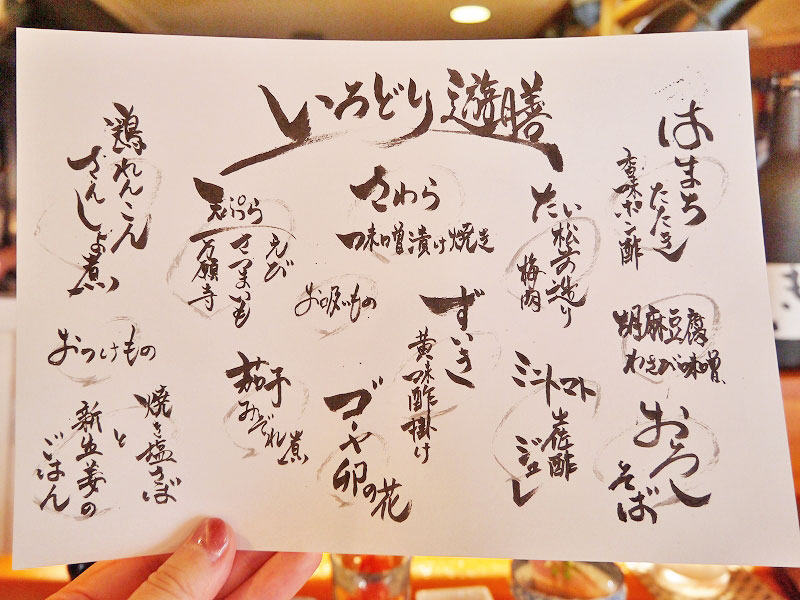 いろどり遊膳
はまち
たたき
香味ポン酢
胡麻豆腐
わさび味噌
おろし
そば
たい
松前造り
梅肉
ミニトマト
土佐酢
ジュレ
さわら
味噌漬け焼き
ずいき
黄味酢掛け
お吸いもの
ゴーヤ
卯の花
天ぷら
えび
さつまいも
万願寺
茄子
みぞれ煮
鶏れんこん
さんしょ煮
おつけもの
焼き塩さば
と
新生姜の
ごはん